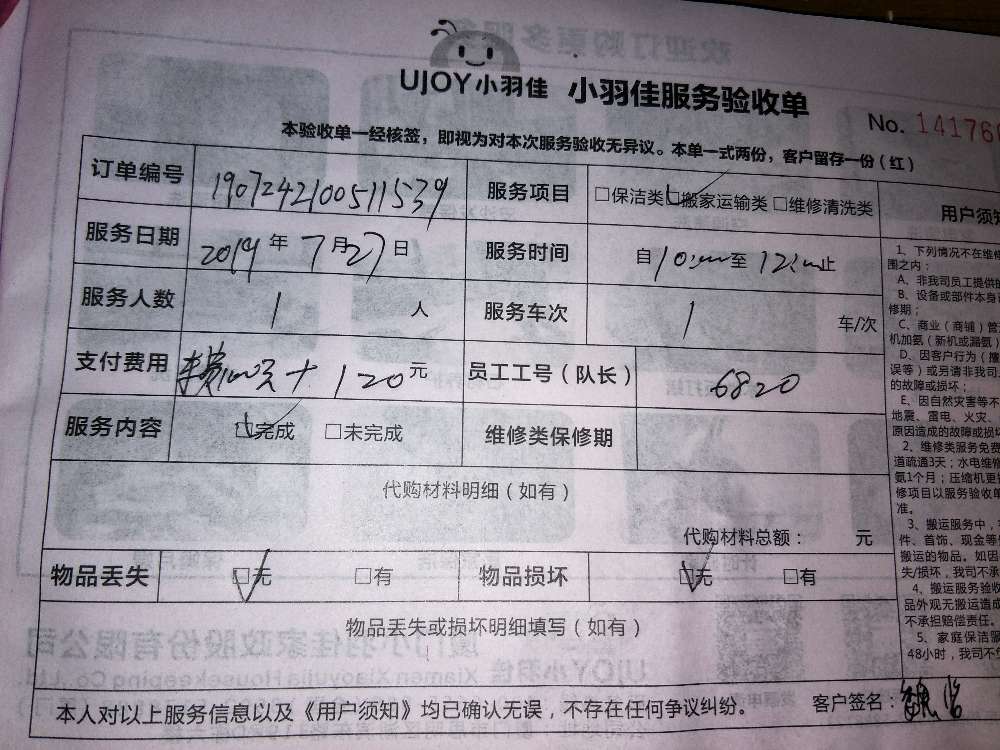 UJOY小羽佳 小羽佳服务验收单
No. 14176
本验收单一经核签，即视为对本次服务验收无异议。本单一式两份，客户留存一份（红）
订单编号 190724210051153９ 服务项目 □保洁类 □搬家运输类 □维修清洗类
服务日期 2019 年 7 月 27 日 服务时间 自 10:00 至 12:00 止
服务人数 1 人 服务车次 1 车/次
支付费用 车费100元 + 120 元 员工工号（队长） 6820
服务内容 □完成 □未完成 维修类保修期
代购材料明细（如有）
代购材料总额： 元
物品丢失 □无 □有 物品损坏 □无 □有
物品丢失或损坏明细填写（如有）
本人对以上服务信息以及《用户须知》均已确认无误，不存在任何争议纠纷。 客户签名：
用户须知
1、下列情况不在维修
围之内：
A、非我司员工提供
B、设备或部件本身
修期；
C、商业（商铺）管
机加氨（新机或漏氨）
D、因客户行为（
误等）或另请非我司
的故障或损坏；
E、因自然灾害等不
地震、雷电、火灾、
原因造成的故障或损坏
2、维修类服务免费
道疏通3天；水电维修
氨1个月；压缩机更
修项目以服务验收单
准。
3、搬运服务中，
件、首饰、现金等
搬运的物品。如因
失/损坏，我司不承
4、搬运服务验收
品外观无搬运造成
不承担赔偿责任。
5、家庭保洁服
48小时，我司不